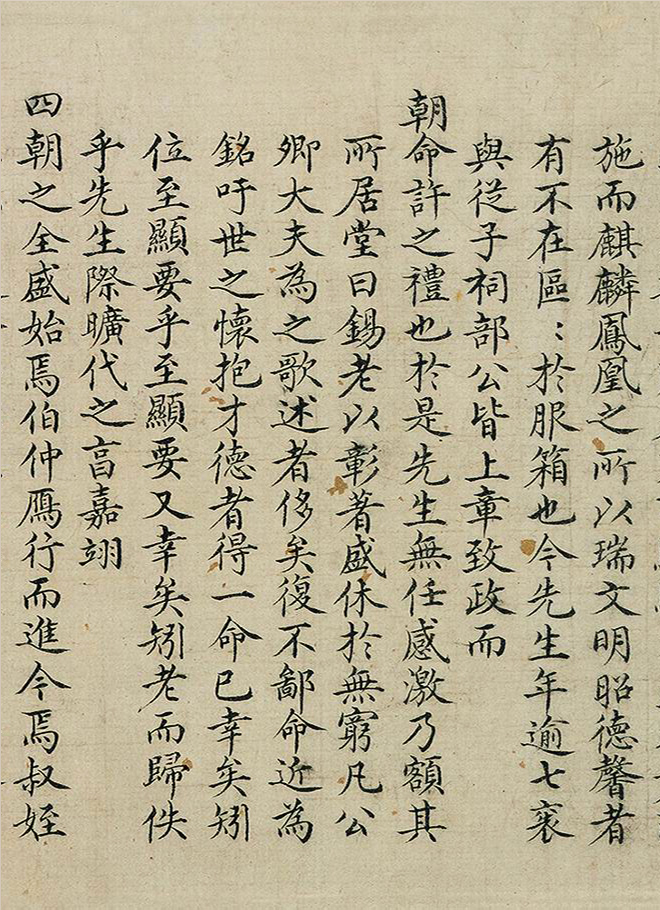 施而麒麟鳳凰之所以瑞文明昭德馨者
有不在區〻於服箱也今先生年逾七袠
與從子祠部公皆上章致政而
朝命許之禮也於是先生無任感激乃額其
所居堂曰錫老以彰著盛休於無窮凡公
卿大夫為之歌述者侈矣復不鄙命近為
銘吁世之懷抱才德者得一命已幸矣矧
位至顯要乎至顯要又幸矣矧老而歸佚
乎先生際曠代之亯嘉翊
四朝之全盛始焉伯仲鴈行而進今焉叔姪